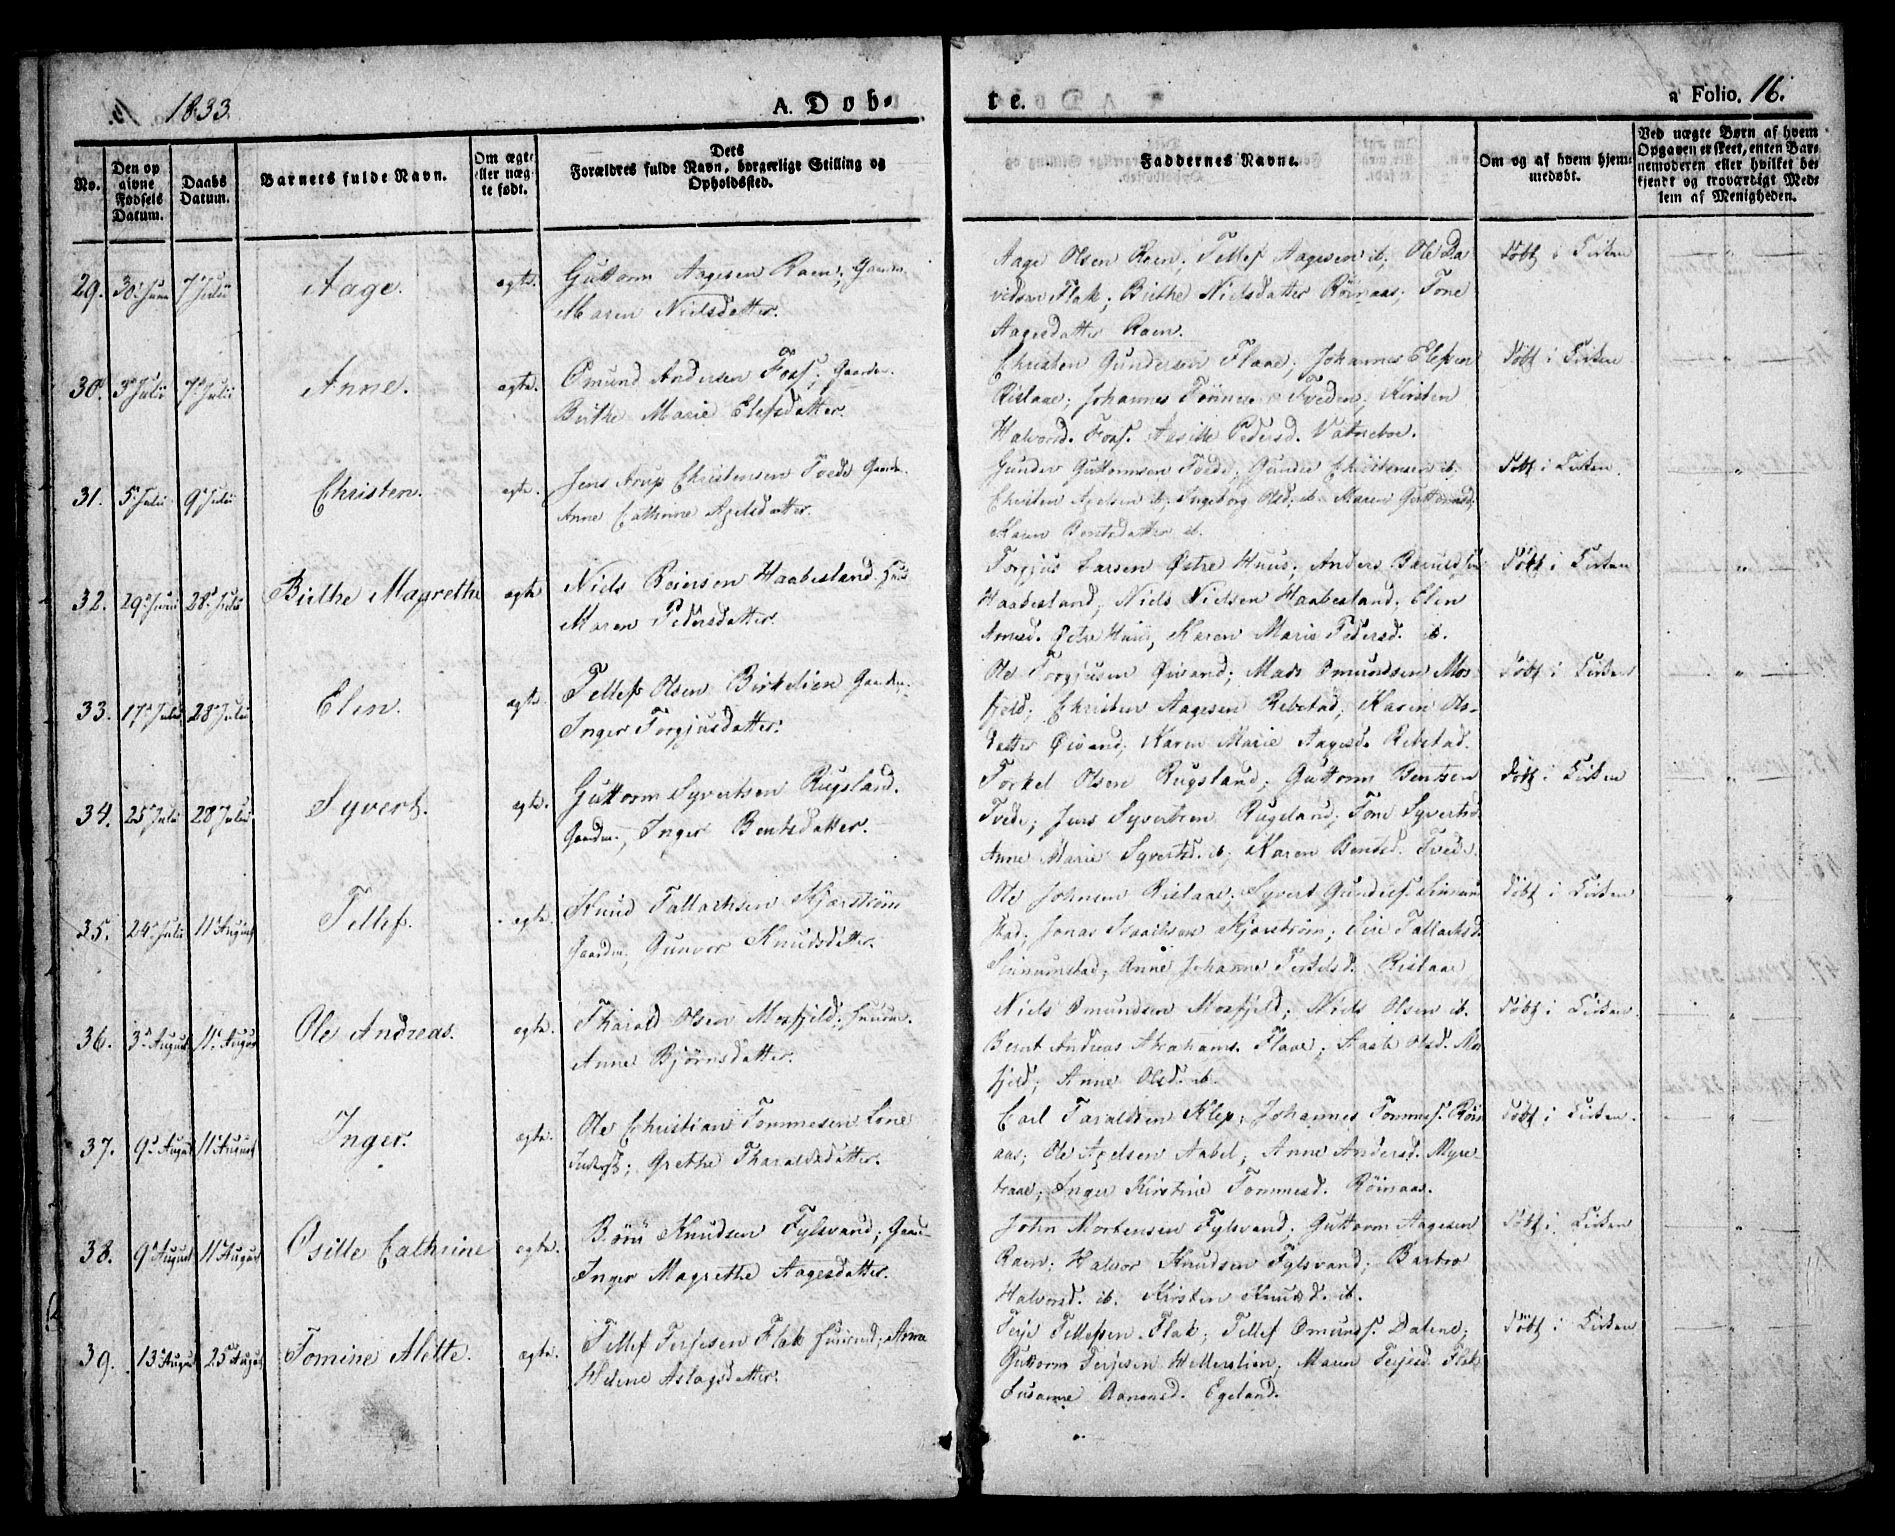 1833.
A. Døb-
te.
a Folio. 16.
No.
Den op
givne
Fødsels
Datum.
Daabs
Datum.
Barnets fulde Navn.
Om ægte
eller uæg-
te født.
Dets
Forældres fulde Navn, borgerlige Stilling og
Opholdssted.
Faddernes Navne.
Om og af hvem hjem-
medøbt.
Ved uægte Børn af hvem
Opgaven er skeet, enten Bar-
nemoderen eller hvilket be-
kjendt og troværdigt Med-
lem af Menigheden.
29. 30. Juni 7 Julii Aage. ægte. Guttorm Aagesen Raen; Gaardm.
Maren Nielsdatter.
Aage Olsen Raen; Tellef Aagesen ib; Ole Da-
vidsen Flak; Birthe Nielsdatter Röinaas; Tone
Aagesdatter Raen.
Döbt i Kirken
30. 3 Julii 7 Julii Anne. ægte. Omund Andersen Foss; Gaardm.
Birthe Marie Elefsdatter.
Christen Gundersen Flaae; Johannes Elefsen
Rislaae; Johannes Tveden; Kirsten
Halvorsd. Foss. Aasille Pedersd. Vatneboe.
Döbt i Kirken
31. 5 Julii 9 Julii Christen. ægte. Jens Arup Christensen Tvede Gaardm.
Anne Cathrine Axelsdatter.
Gunder Guttormsen Tvede; Gunder Christensen ib.
Christen Axelsen ib; Ingeborg Olsd. ib. Maren Guttormsd.
Karen Bentsdatter ib.
Döbt i Kirken.
32. 29 Juni 28 Julii Birthe Magrethe ægte Niels Reiersen Haabesland. Huus
Maren Pedersdatter.
Torgjus Larsen Østre Huus; Anders
Haabesland; Niels Nielsen Haabesland; Elen
Arnesd. Østre Huus, Karen Marie Pedersd. ib.
Döbt i Kirken
33. 17 Julii 28 Julii Elen. ægte. Tellef Olsen Birkelien Gaardm.
Inger Torgjusdatter.
Ole Torgjusen Øivand; Mads Omundsen Mos-
fjeld; Christen Aagesen Rebstad; Karen Ols-
datter Øivand; Karen Marie Aagesd. Rebstad.
Döbt i Kirken
34. 25 Julii 28 Julii Syvert. ægte. Guttorm Syvertsen Rugsland.
Gaardm., Inger Bentsdatter.
Torkel Olsen Rugsland; Guttorm Bentsen
Tvede; Jens Syvertsen Rugsland; Tone Syvertsd.
Anne Marie Syvertsd. ib; Karen Bentsd. Tvede.
Döbt i Kirken
35. 24 Julii 11 August Tellef. ægte. Knud Tallachsen Kjærström
Gaardm. Gunvor Knudsdatter.
Ole Johnsen Rislaae; Syvert Gunders. Sinnum-
stad; Jonas Isaachsen Kjerström; Siri Tallachsd.
Sinnumstad; Anne Johanne Tertelsd. Rislaae
Döbt i Kirken
36. 3 August 11 August Ole Andreas. ægte. Tharald Olsen Mosfjeld; Huusm.
Anne Bjørnsdatter.
Niels Omundsen Mosfjeld; Niels Olsen ib.
Bernt Andreas Abrahams. Flaae; Aasle Olsd. Mos-
fjeld; Anne Olsd. ib.
Döbt i Kirken
37. 9 August 11 August Inger. ægte. Ole Christian Tommesen Lone
Inderst; Grethe Tharaldsdatter.
Carl Taraldsen Klep; Johannes Tommes. Röin-
aas; Ole Axelsen Aabel; Anne Andersd. Myre-
braae; Inger Kirstine Tommesd. Röinaas.
Döbt i Kirken.
38. 9 August 11 August Osille Cathrine ægte. Börü Knudsen Fylsvand; Gaard-
Inger Magrethe Aagesdatter.
John Mortensen Fylsvand; Guttorm Aagesen
Raen; Halvor Knudsen Fylsvand; Barbro
Halvorsd. ib. Kirsten Knudsd. ib.
Döbt i Kirken
39. 13 August 25 August Tomine Alette. ægte. Tellef Terjesen Flak Anne
Helene Aslagsdatter.
Terje Tellefsen Flak; Tellef Omunds. Dalene;
Guttorm Terjesen Hellerslien; Maren Terjesd. Flak
Susanne Aanensd. Egeland.
Döbt i Kirken